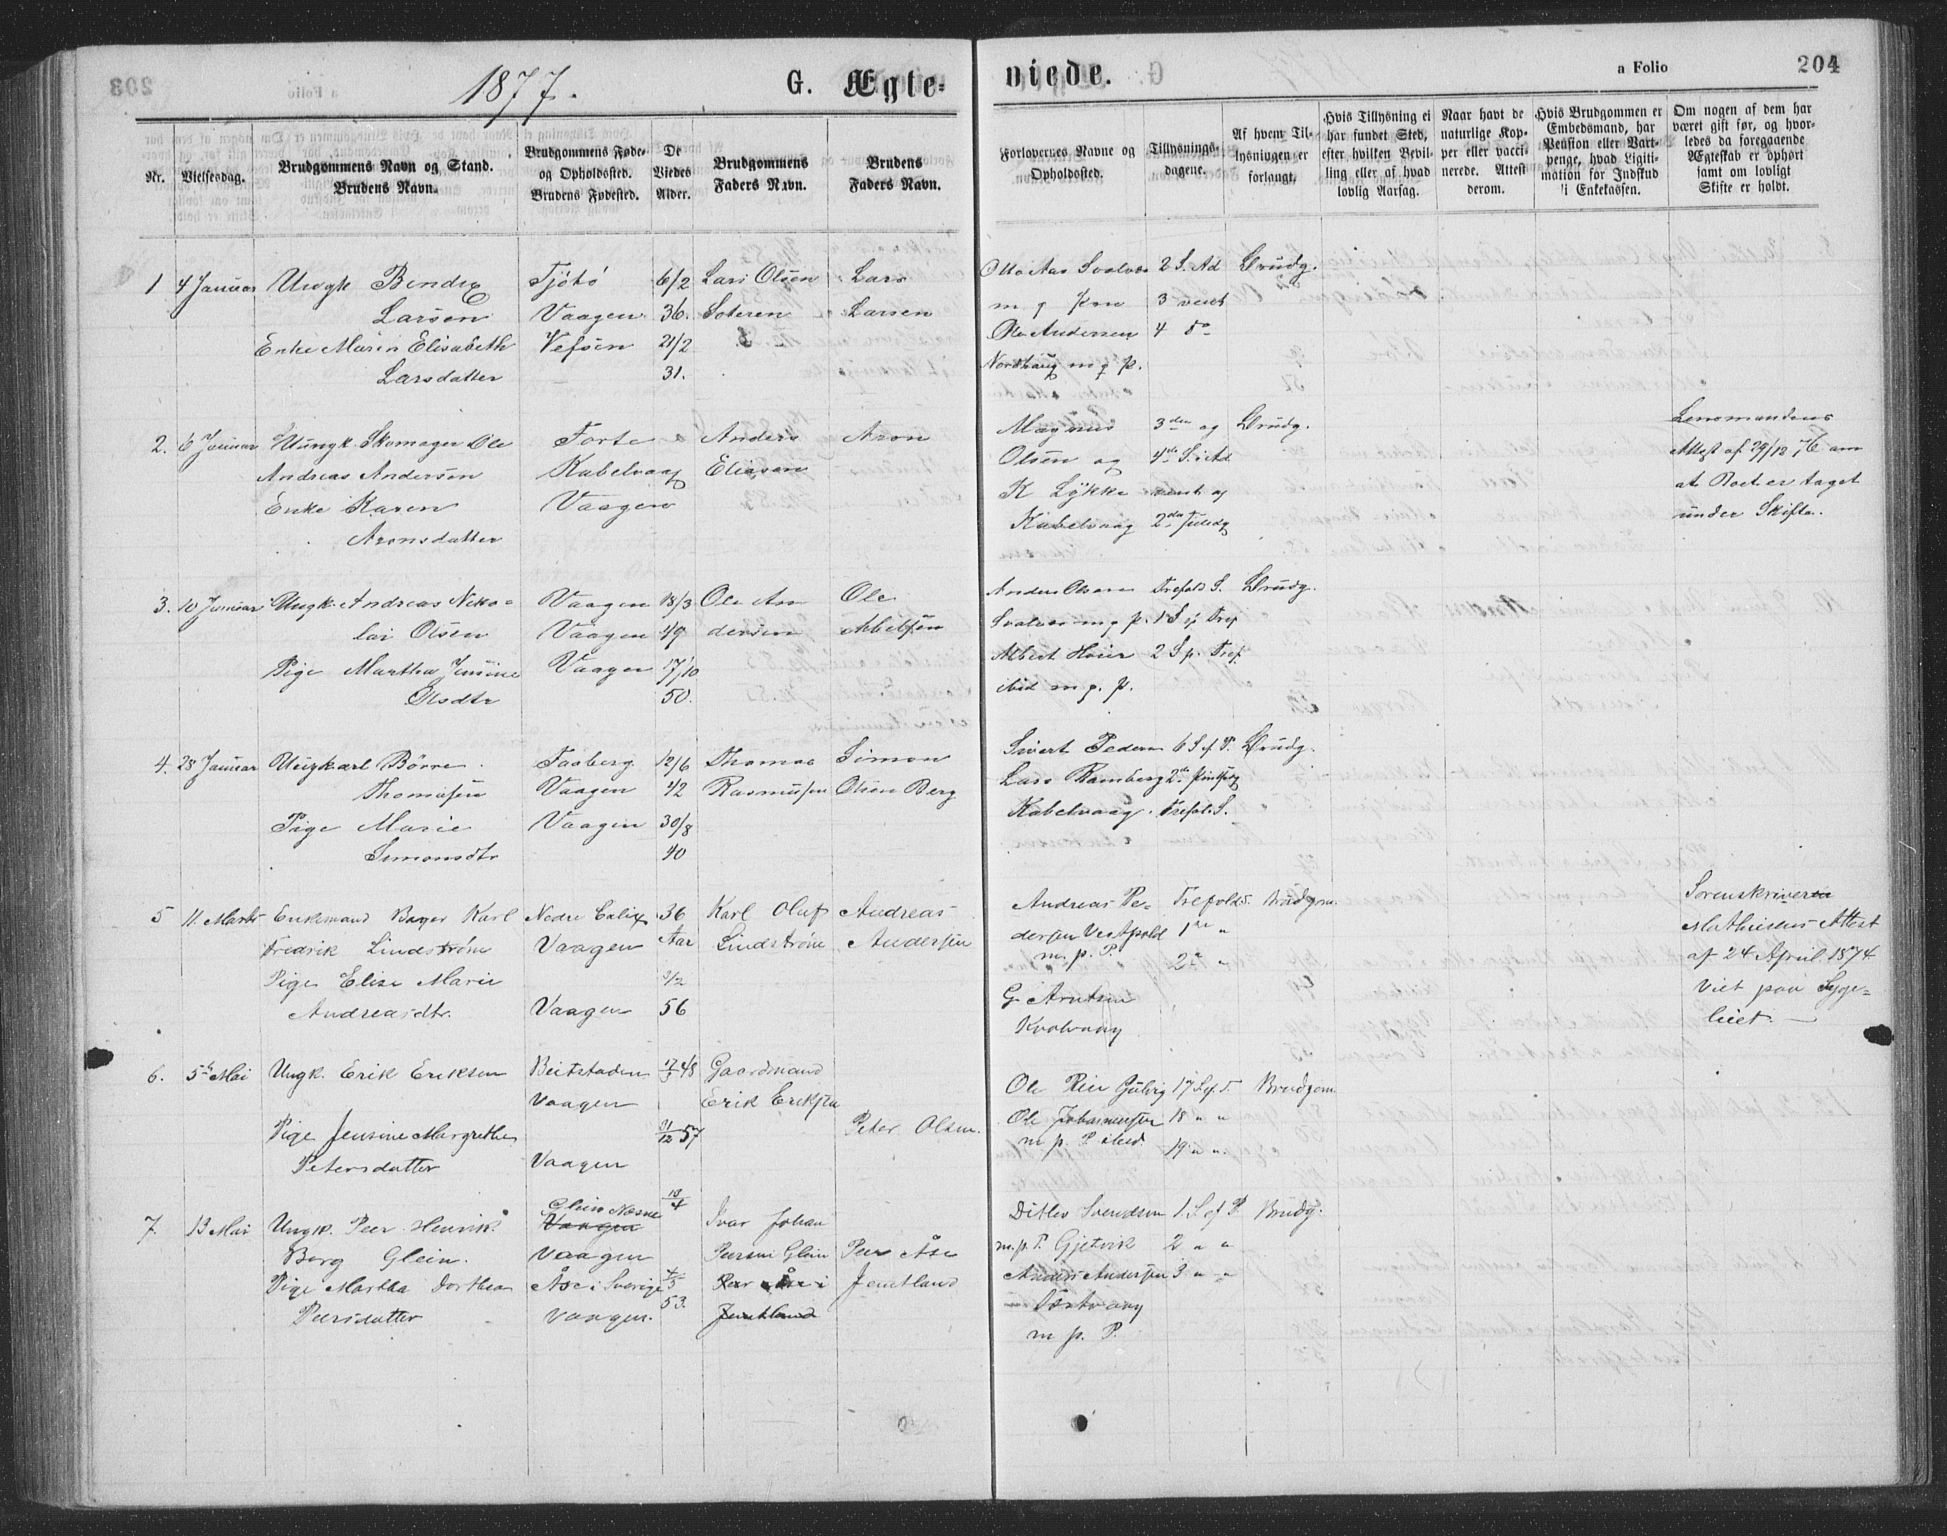 1877.
G. Ægte-
viede.
a Folio
204
Nr.
Vielsesdag.
Brudgommens Navn og Stand.
Brudens Navn.
Brudgommens Føde-
og Opholdssted.
Brudens Fødested.
De
Viedes
Alder.
Brudgommens
Faders Navn.
Brudens
Faders Navn.
Forlovernes Navne og
Opholdssted.
Tillysnings-
dagene.
Af hvem Til-
lysningen er
forlangt.
Hvis Tillysning ei
har fundet Sted,
efter hvilken Bevil-
ling eller af hvad
lovlig Aarsag.
Naar havt de
naturlige Kop-
per eller vacci-
nerede. Attest
derom.
Hvis Brudgommen er
Embedsmand, har
Pension eller Vart-
penge, hvad Ligiti-
mation for Indskud
i Enkekassen.
Om nogen af dem har
været gift før, og hvor-
ledes da foregaaende
Ægteskab er ophørt
samt om lovligt
Skifte er holdt.
1 4 Januar Ungk Bendix Tjötö 6/2 Lars Olsen Lars
Larsen Vaagen 36. Soteren Larsen
Enke Maren Elisabeth Vefsen 21/2
Larsdatter 31.
Otto Aas Svolvær 2 S. Ad Brudg.
m q 3
Ole Andersen 4 do
Nordhaug m q p.
2. 6 Januar Ungk. Skomager Ole Anders Aron
Andreas Andersen Kabelvaag Eliasen
Enke Karen Vaagen
Aronsdatter
Magnus 3die og Brudg.
Olsen og 4de S. i Ad
K Lykke og
Kabelvaag 2den Juledg
Lensmandens
Attest af 29/12 76 om
at Boet er taget
under Skifte.
3. 10 Januar Ungk. Andreas Niko- Vaagen 18/3 Ole An Ole
lai Olsen Vaagen 49 dersen Abelsen
Pige Martha Jensine Vaagen 17/10
Olsdtr 50.
Anders Olsen Trefold S. Brudg.
Svolvær m q p. 1 S Tref
Albert Hoier 2 S p. Tref.
ibid m q. p.
4. 28 Januar Ungkarl Börre Faaberg 12/6 Thomas Simon
Thomasen Vaagen 42 Rasmusen Olsen Berg
Pige Marie Vaagen 30/8
Simonsdtr 40
Sivert Pedersen 6 S ef P. Brudg.
Lars Ramberg 2de
Kabelvaag. Trefol. S.
5 11. Marts Enkemand Bager Karl Nedre Calix 36 Karl Oluf Andreas
Fredrik Lindström Vaagen Aar Lindström Andersen
Pige Elise Marie /2
Andreasdtr. Vaagen 56
Andreas Pe- Trefolds. Brudgom
dersen Vestpold 1ste "
m. p. P. 2 "
G Arntsen
Kvalvaag
Sorenskriver
Mathiesens Attest
af 24 April 1874
Viet paa Syge-
leiet.
6. 5te Mai Ungk. Erik Eriksen Beitstaden 48 Gaardmand
Vaagen Erik Eriksen
Pige Jensine Margrethe 57 Peter Olsen.
Petersdatter Vaagen
Ole Gulvig 17 S ef T. Brudgom
Ole Johannesen 18 " "
m p. P. ibid. 19 " "
7. 13 Mai Ungk. Peer Henrik Glein Nesne 10/4 Ivar Johan
Vaagen
Borg Glein. Vaagen Peersen Glein Peer Åse
Pige Martha Dorthea Åse i Sverige 4/5 Peer Åse i Jemtland
Peersdatter Vaagen. 53. Jemtland
Ditlev Svendsen 1 S ef P Brudg.
m. p. P. Gjetvik 2 " "
Anders Andersen 3 " "
m p. P.